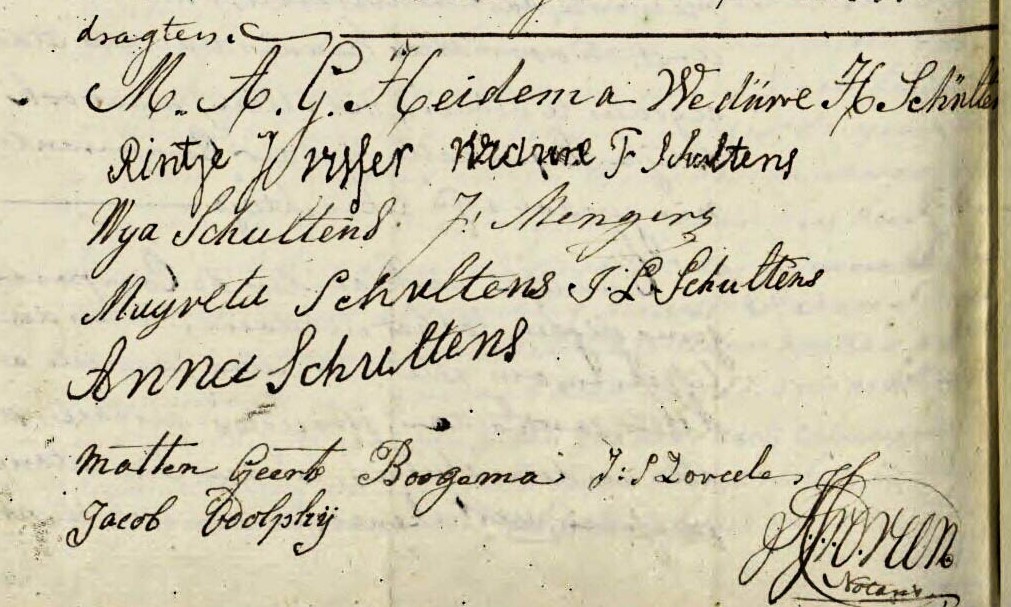 dragten.
M. A. G. Heidema Weduwe H Schulten
Rintje J Visser Weduwe F Schultens
Wya Schultens. J. Mengers
Mugreta Schultens J. L. Schultens
Anna Schultens
Matten Geert Boogema J: S
Jacob Edolphij
Notaris